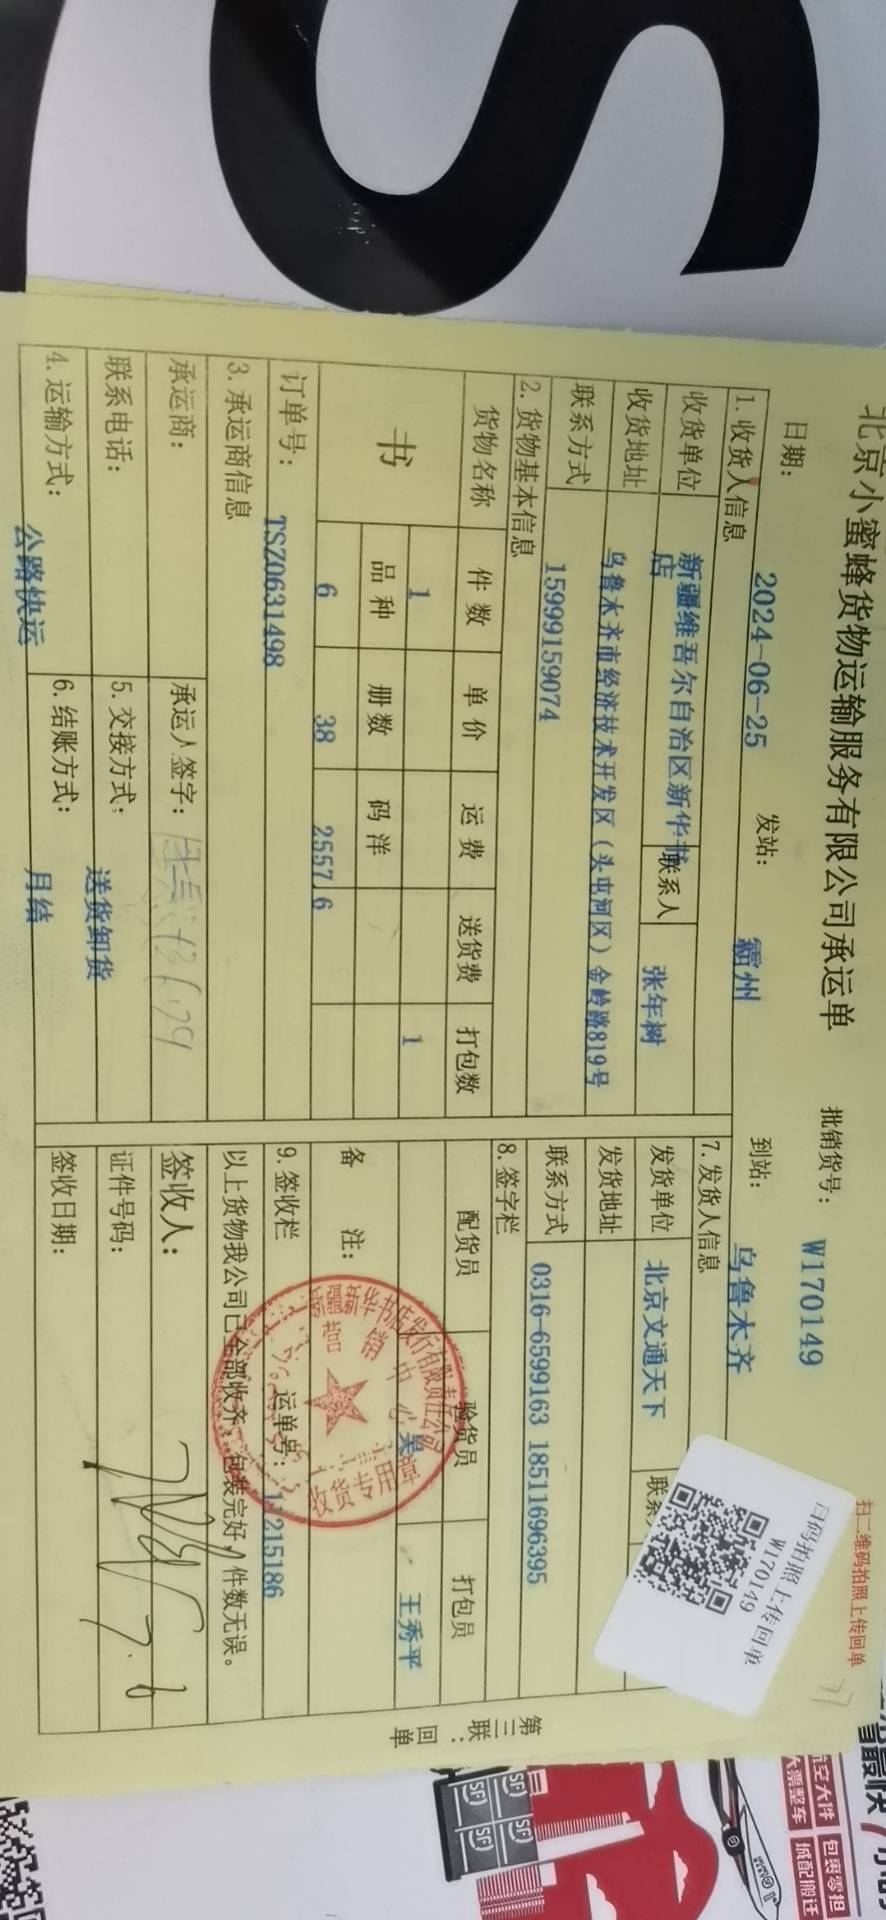 北京小蜜蜂货物运输服务有限公司承运单
批销货号: W170149
日期: 2024-06-25 发站: 霸州 到站: 乌鲁木齐
1. 收货人信息
收货单位 新疆维吾尔自治区新华书店 联系人 张年树
收货地址 乌鲁木齐市经济技术开发区(头屯河区)金岭路819号
联系方式 15999159074
2. 货物基本信息
货物名称 件数 单价 运费 送货费 打包数
书 1 1
品种 册数 码洋
6 38 2557.6
订单号: TSZ0631498
3. 承运商信息
承运商: 承运人签字:
联系电话: 5. 交接方式: 送货卸货
4. 运输方式: 公路快运 6. 结账方式: 月结
7. 发货人信息
发货单位 北京文通天下 联系
发货地址
联系方式 0316-6599163 18511696395
8. 签字栏
配货员 验货员 打包员
吴 王秀平
备 注:
9. 签收栏 运单号: 11215186
以上货物我公司已全部收齐,包装完好,件数无误。
签收人:
证件号码:
签收日期:
第三联:回单
新疆新华书店发行有限责任公司
营销中心
收货专用章
扫二维码拍照上传回单
扫码拍照上传回单
W170149
最快
航空大件 包裹零担
大票整车 城配搬迁
SF SF
SF SF